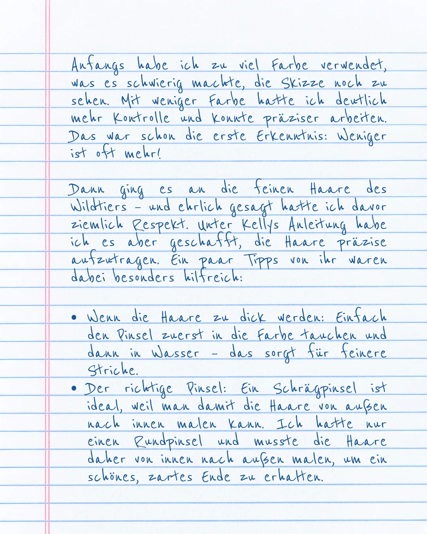 Anfangs habe ich zu viel Farbe verwendet,
was es schwierig machte, die Skizze noch zu
sehen. Mit weniger Farbe hatte ich deutlich
mehr Kontrolle und konnte präziser arbeiten.
Das war schon die erste Erkenntnis: Weniger
ist oft mehr!
Dann ging es an die feinen Haare des
Wildtiers – und ehrlich gesagt hatte ich davor
ziemlich Respekt. Unter Kellys Anleitung habe
ich es aber geschafft, die Haare präzise
aufzutragen. Ein paar Tipps von ihr waren
dabei besonders hilfreich:
• Wenn die Haare zu dick werden: Einfach
den Pinsel zuerst in die Farbe tauchen und
dann in Wasser – das sorgt für feinere
Striche.
• Der richtige Pinsel: Ein Schrägpinsel ist
ideal, weil man damit die Haare von außen
nach innen malen kann. Ich hatte nur
einen Rundpinsel und musste die Haare
daher von innen nach außen malen, um ein
schönes, zartes Ende zu erhalten.